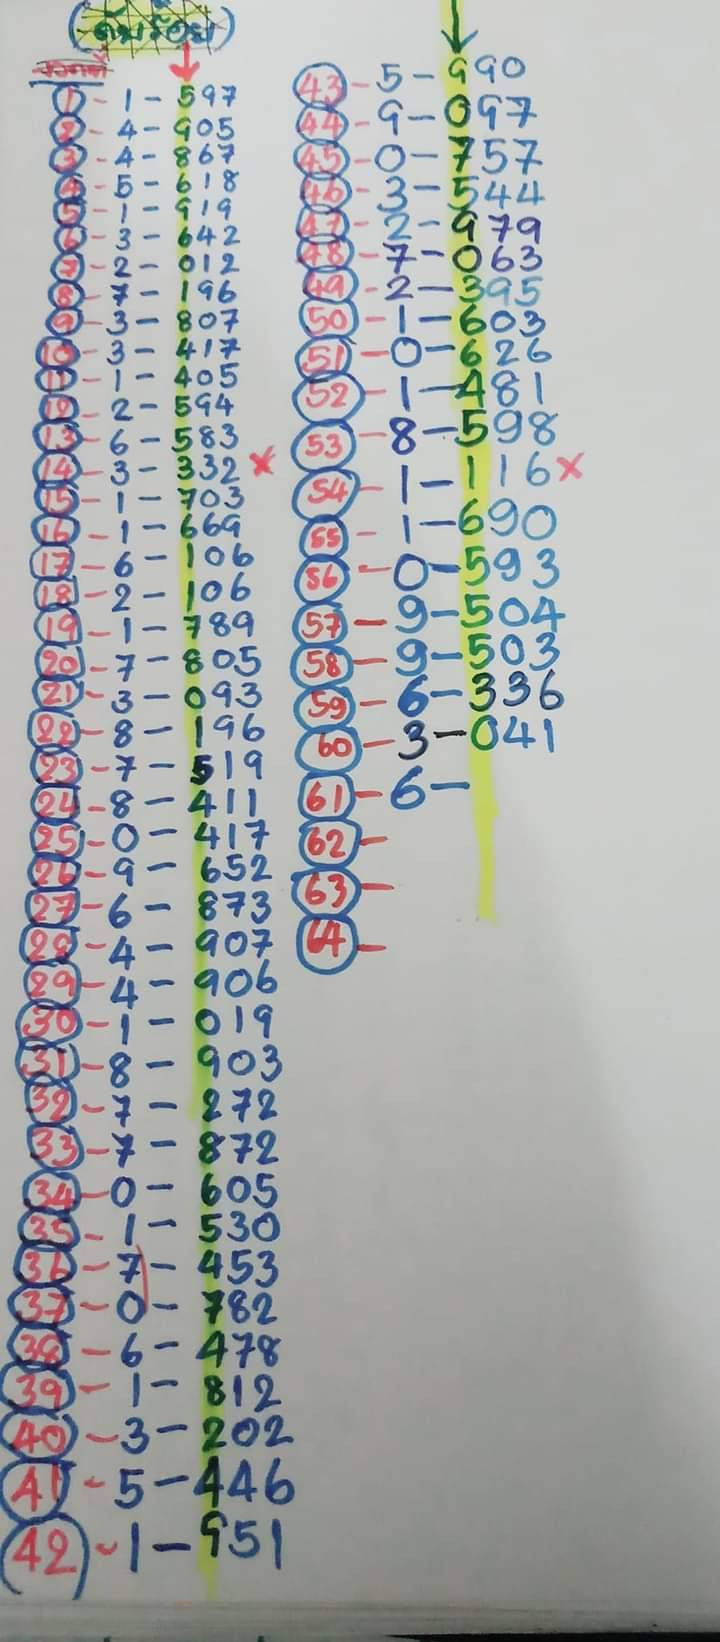 (ดับร้อย)
1 - 1 - 597
2 - 4 - 905
3 - 4 - 867
4 - 5 - 618
5 - 1 - 919
6 - 3 - 642
7 - 2 - 012
8 - 7 - 196
9 - 3 - 807
10 - 3 - 417
11 - 1 - 405
12 - 2 - 594
13 - 6 - 583
14 - 3 - 332 ×
15 - 1 - 703
16 - 1 - 669
17 - 6 - 106
18 - 2 - 106
19 - 1 - 789
20 - 7 - 805
21 - 3 - 093
22 - 8 - 196
23 - 7 - 519
24 - 8 - 411
25 - 0 - 417
26 - 9 - 652
27 - 6 - 873
28 - 4 - 907
29 - 4 - 906
30 - 1 - 019
31 - 8 - 903
32 - 7 - 272
33 - 7 - 872
34 - 0 - 605
35 - 1 - 530
36 - 7 - 453
37 - 0 - 782
38 - 6 - 478
39 - 1 - 812
40 - 3 - 202
41 - 5 - 446
42 - 1 - 951
43 - 5 - 990
44 - 9 - 097
45 - 0 - 757
46 - 3 - 544
47 - 2 - 979
48 - 7 - 063
49 - 2 - 395
50 - 1 - 603
51 - 0 - 626
52 - 1 - 481
53 - 8 - 598
54 - 1 - 116 ×
55 - 1 - 690
56 - 0 - 593
57 - 9 - 504
58 - 9 - 503
59 - 6 - 336
60 - 3 - 041
61 - 6 -
62 -
63 -
64 -